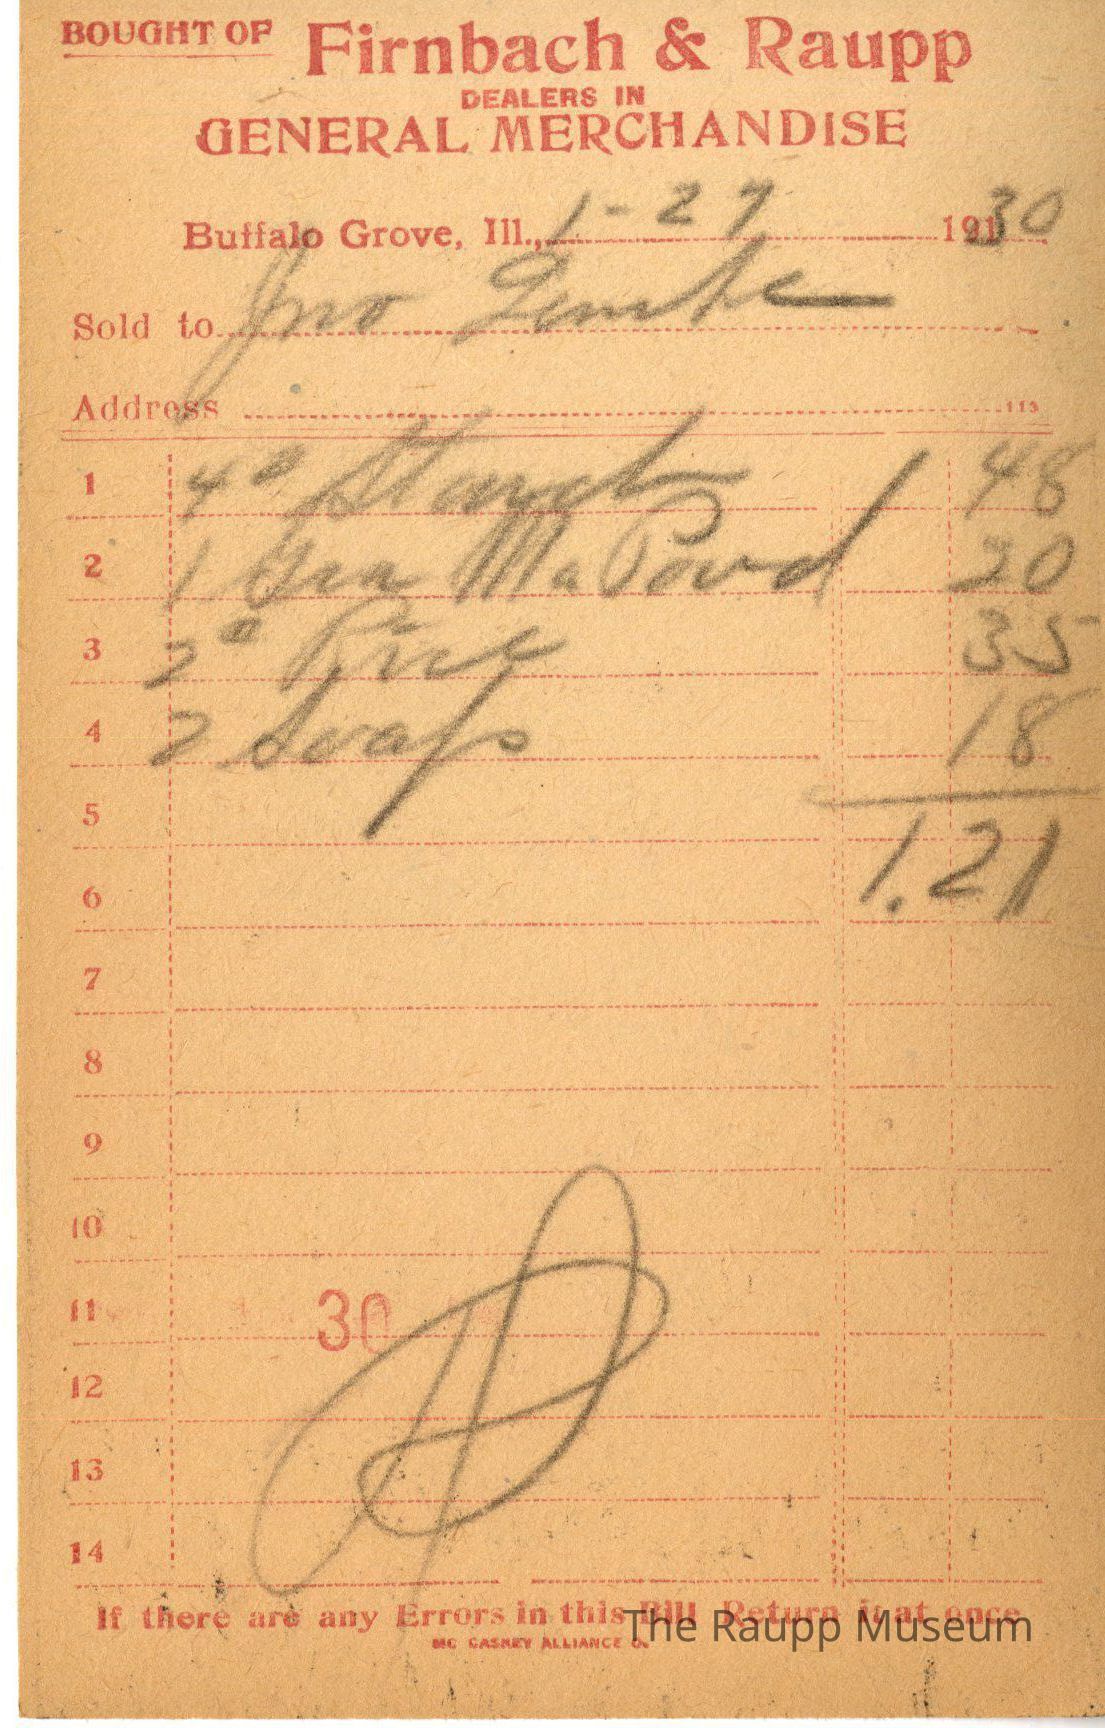 BOUGHT OF Firnbach & Raupp
DEALERS IN
GENERAL MERCHANDISE
Buffalo Grove, Ill., 1-27 191 30
Sold to Jno
Address 113
1 4# Starch 48
2 1 Gra Ma Powd 20
3 2# Rice 35
4 2 Soaps 18
5
6 1.21
7
8
9
10
11 30
12
13
14
If there are any Errors in this Bill Return it at once
MC CASKEY ALLIANCE O.
The Raupp Museum